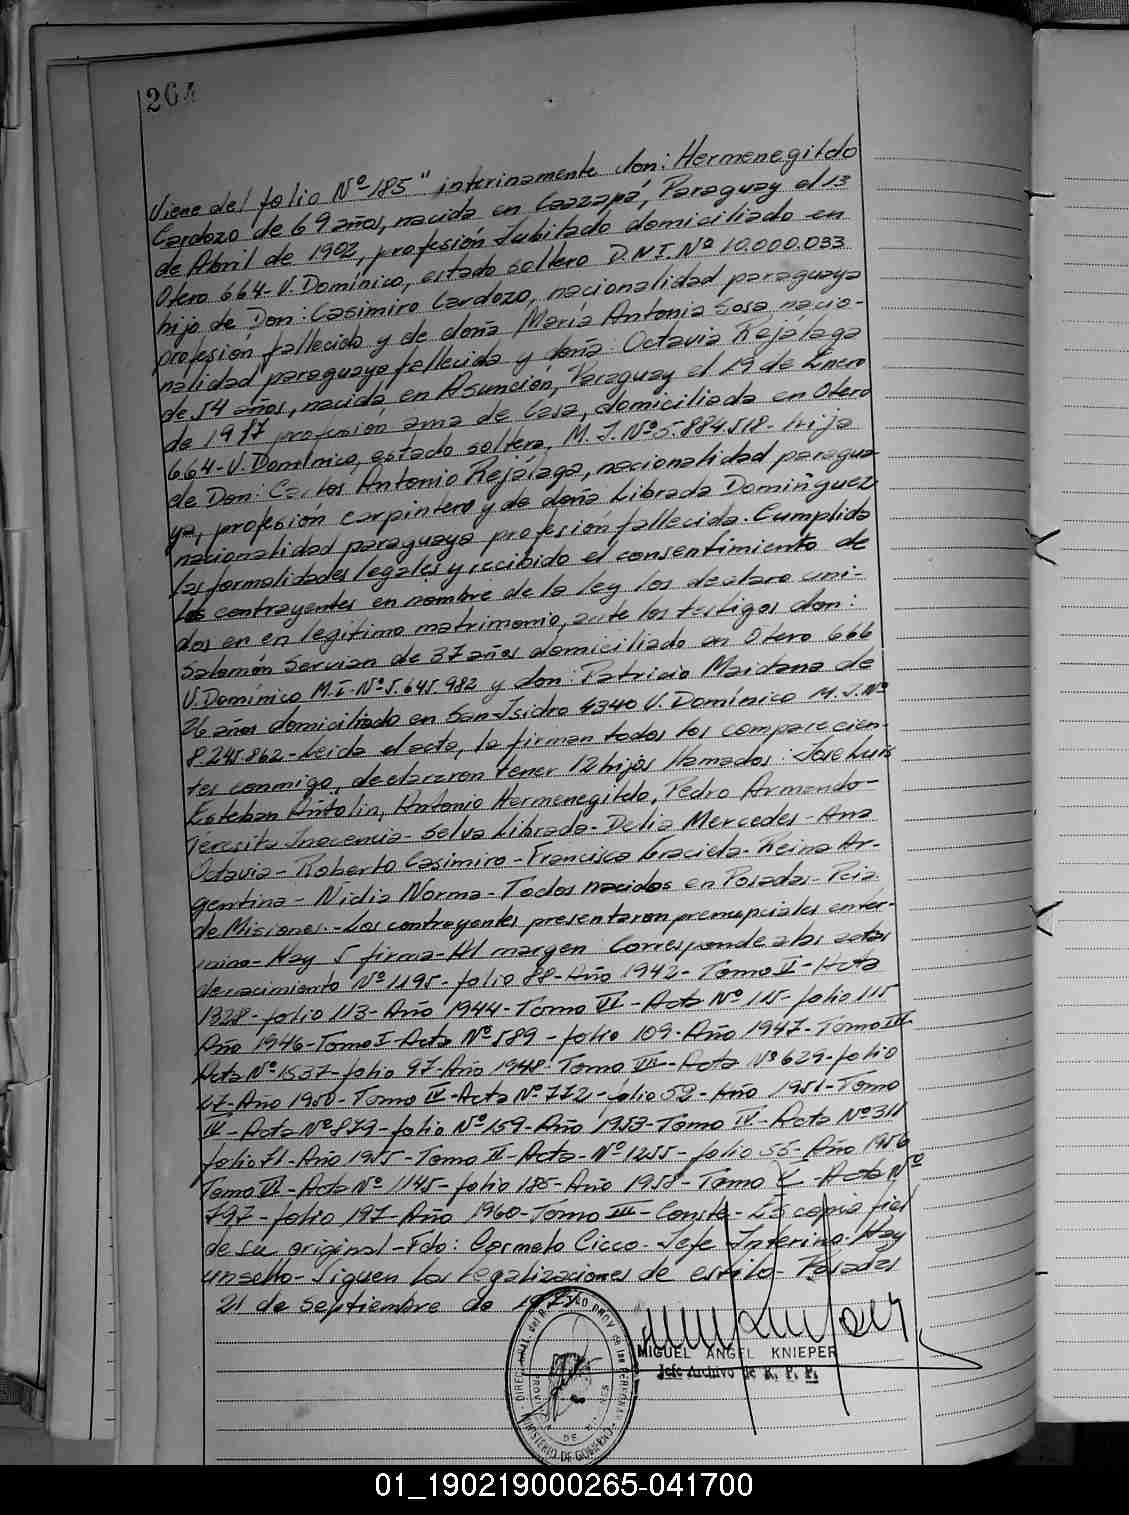 204
Viene del folio Nº 185" interinamente don: Hermenegildo
Cardozo de 69 años, nacida en Caazapá, Paraguay el 13
de Abril de 1902, profesión Jubilado domiciliado en
Otero 664-V. Domínico, estado soltero D.N.I. Nº 10.000.033
hijo de Don: Casimiro Cardozo, nacionalidad paraguaya
profesión fallecido y de doña María Antonia Sosa nacio-
nalidad paraguaya fallecida y doña: Octavia Rejálaga
de 54 años, nacida en Asunción, Paraguay el 19 de Enero
de 1917 profesión ama de Casa, domiciliada en Otero
664-V. Domínico, estado soltera, M.I. Nº 5.884.518- hija
de Don: Carlos Antonio Rejálaga, nacionalidad paragua-
ya, profesión carpintero y de doña Librada Dominguez
nacionalidad paraguaya profesión fallecida. Cumplida
las formalidades legales y recibido el consentimiento de
los contrayentes en nombre de la ley los declaro uni-
dos en en legítimo matrimonio, ante los testigos don:
Salomón Servian de 37 años domiciliado en Otero 666
V. Domínico M.I. Nº 5.645.982 y don: Patricio Maidana de
26 años domiciliado en San Isidro 4340 V. Domínico M.I. Nº
8.245.862- Leida el acta, la firman todos los comparecien-
tes conmigo, declararon tener 12 hijos llamados: José Luis
Esteban Antolin, Antonio Hermenegildo, Pedro Armando-
Teresita Inocencia- Selva Librada- Delia Mercedes- Ana
Octavia- Roberto Casimiro- Francisca Graciela- Reina Ar-
gentina- Nidia Norma- Todos nacidos en Posadas- Pcia
de Misiones.- Los contrayentes presentaron prenupciales enter-
mino- Hay 5 firma- Al margen: Corresponde a las actas
de nacimiento Nº 1195- folio 88- Año 1942- Tomo II- Acta
1328- folio 113- Año 1944- Tomo VI- Acta Nº 115- folio 115
Año 1946- Tomo I- Acta Nº 589- folio 109- Año 1947- Tomo III
Acta Nº 1537- folio 97- Año 1948- Tomo VII- Acta Nº 629- folio
47- Año 1950- Tomo IV- Acta Nº 772- folio 52- Año 1951- Tomo
IV- Acta Nº 879- folio Nº 159- Año 1953- Tomo IV- Acta Nº 311
folio 71- Año 1955- Tomo II- Acta- Nº 1255- folio 55- Año 1956
Tomo VI- Acta Nº 1145- folio 185- Año 1958- Tomo V- Acta Nº
797- folio 197- Año 1960- Tomo III- Conste- Es copia fiel
de su original- Fdo: Carmelo Cicco- Jefe Interino- Hay
un sello- Siguen las legalizaciones de estilo- Posadas
21 de Septiembre de
MIGUEL ANGEL KNIEPER
Jefe Archivo de R. P. P.
MINISTERIO DE GOBIERNO
01_190219000265-041700